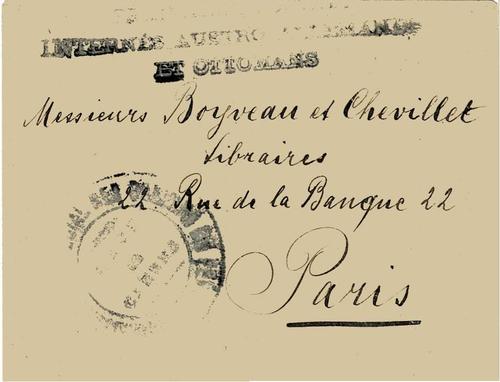 INTERNÉS AUSTRO ALLEMANDS
ET OTTOMANS
Messieurs Boyveau et Chevillet
Libraires
22 Rue de la Banque 22
Paris